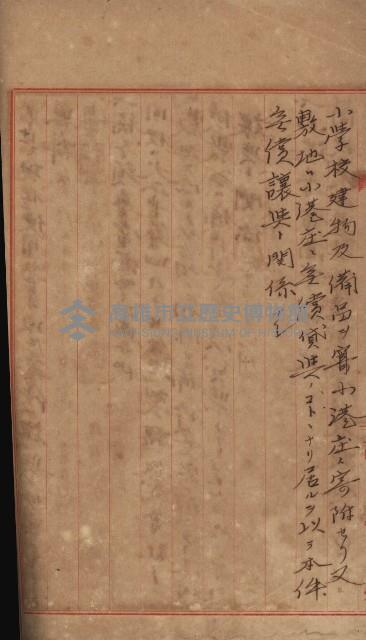 小學校建物及備品ヲ舉小港庄ニ寄附セリ又
敷地ハ小港庄ニ無償貸與ノコトヽナリ居ルヲ以テ本件
無償讓與ト關係
高雄市立歷史博物館
KAOHSIUNG MUSEUM OF HISTORY